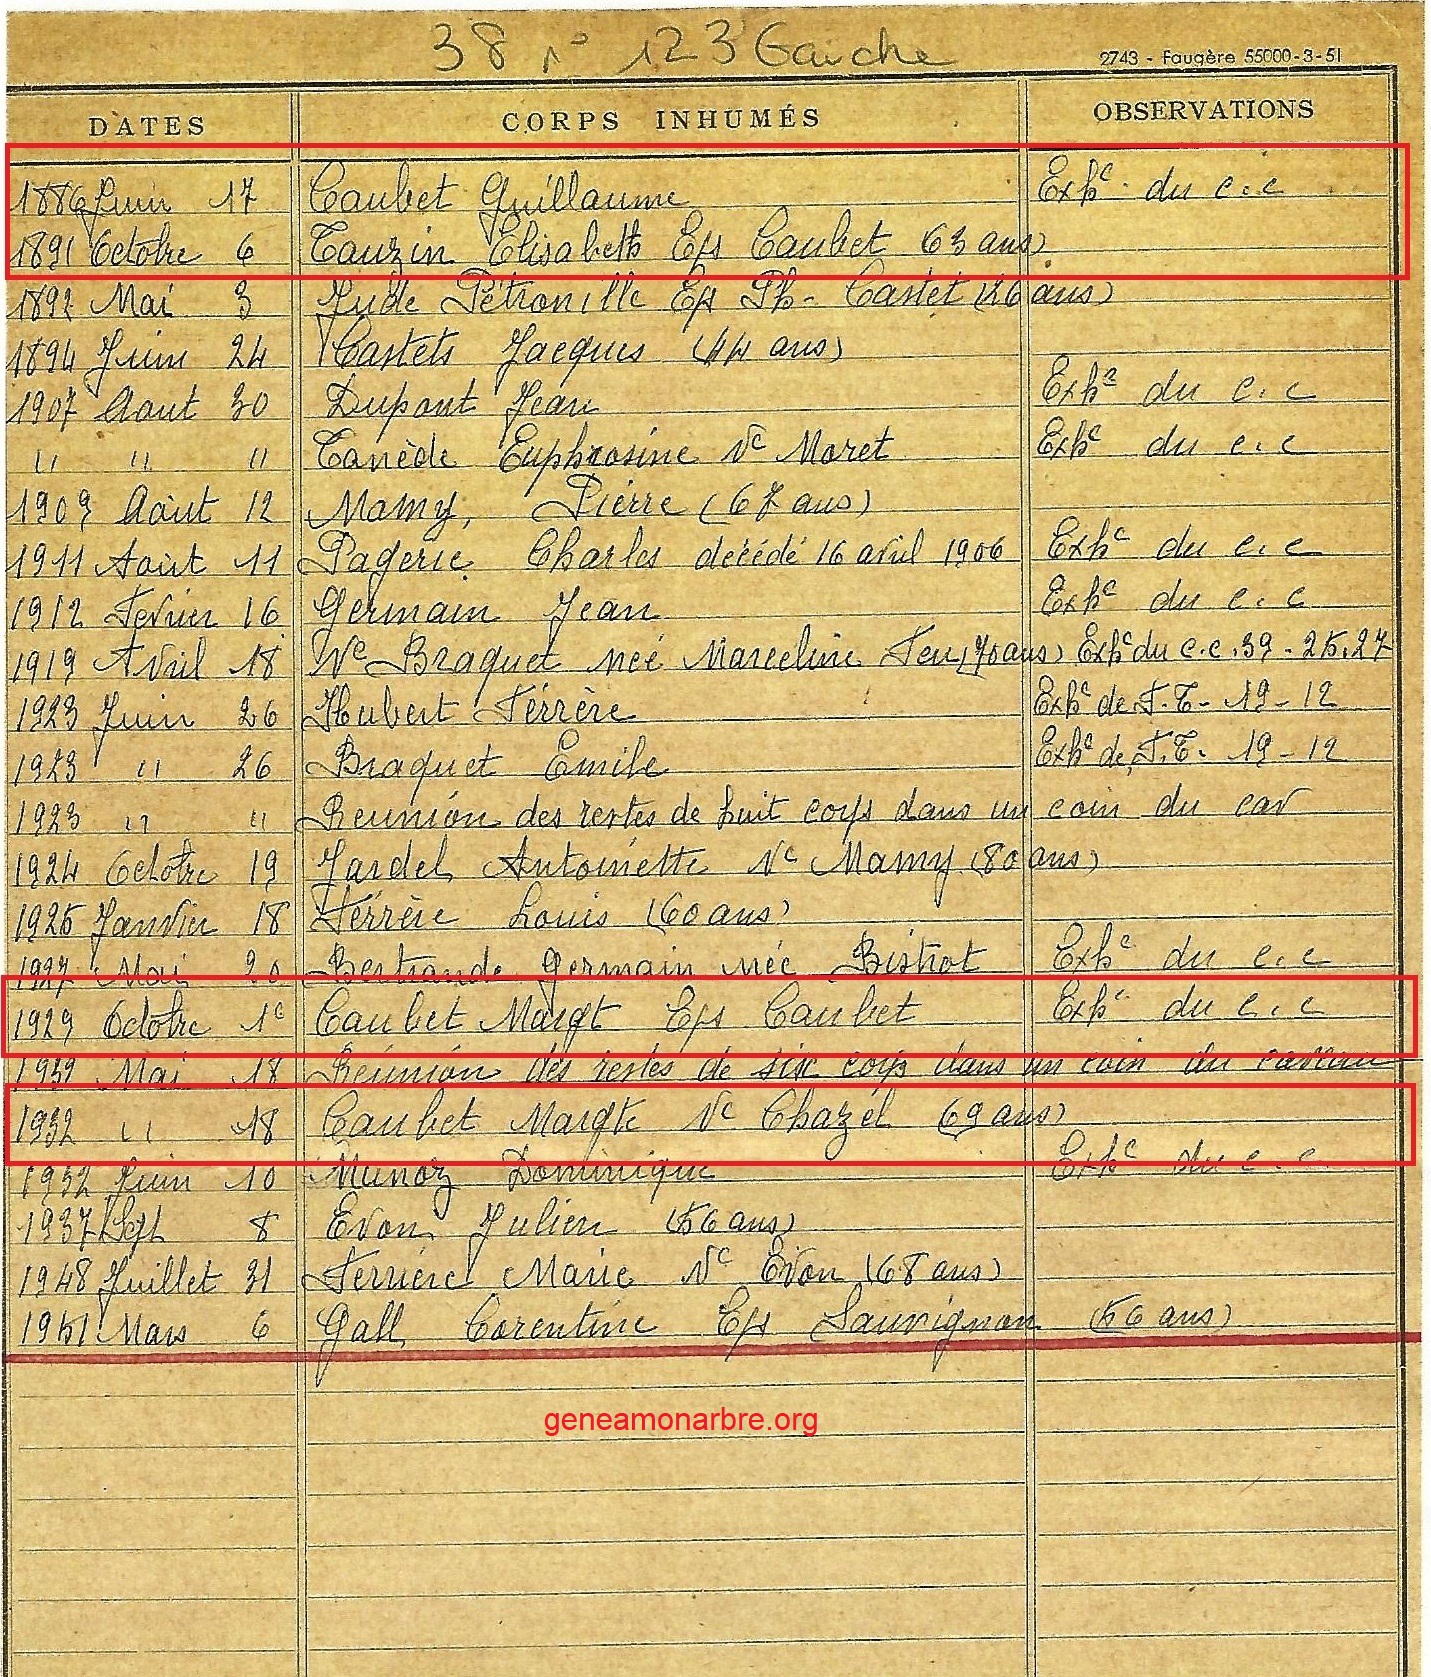 38 n° 123 Gauche
2743 - Faugère 55000-3-51
DATES CORPS INHUMÉS OBSERVATIONS
1886 Juin 17 Caubet Guillaume Exh.c du c.c
1891 Octobre 6 Tauzin Elisabeth Eps Caubet (63 ans)
1892 Mai 3 Jude Pétronille Eps Ph- Castet (26 ans)
1894 Juin 24 Castets Jacques (44 ans)
1907 Aout 30 Dupont Jean Exh.c du c.c
" " " Tanède Euphrosine Vc Moret Exh.c du c.c
1909 Août 12 Mamy, Pierre (67 ans)
1911 Août 11 Pagerie Charles décédé 16 avril 1906 Exh.c du c.c
1912 Fevrier 16 Germain Jean Exh.c du c.c
1919 Avril 18 Vve Braquet née Marceline Feu (70 ans) Exh.c du c.c.39-25.27
1923 Juin 26 Hubert Férrère Exh.c de T.T- 19-12
1923 " 26 Braquet Emile Exh.c de T.T- 19-12
1923 " " Reunion des restes de huit corps dans un coin du cav
1924 Octobre 19 Jardel Antoinette Vc Mamy (80 ans)
1925 Janvier 18 Férrère Louis (60 ans)
1927 Mai 20 Bertrande Germain née Bistrot Exh.c du c.c
1929 Octobre 1c Caubet Margt Eps Caubet Exh.c du c.c
1932 Mai 18 Réunion des restes de six corps dans un coin du caveau
1932 " 18 Caubet Margte Vc Chazél (69 ans)
1932 Juin 10 Munoz Dominique Exh.c du c.c
1937 Sept 8 Evon Julien (56 ans)
1948 Juillet 31 Ferrière Marie Vc Evon (68 ans)
1951 Mars 6 Gall Corentine Eps Sauvignon (56 ans)
geneamonarbre.org